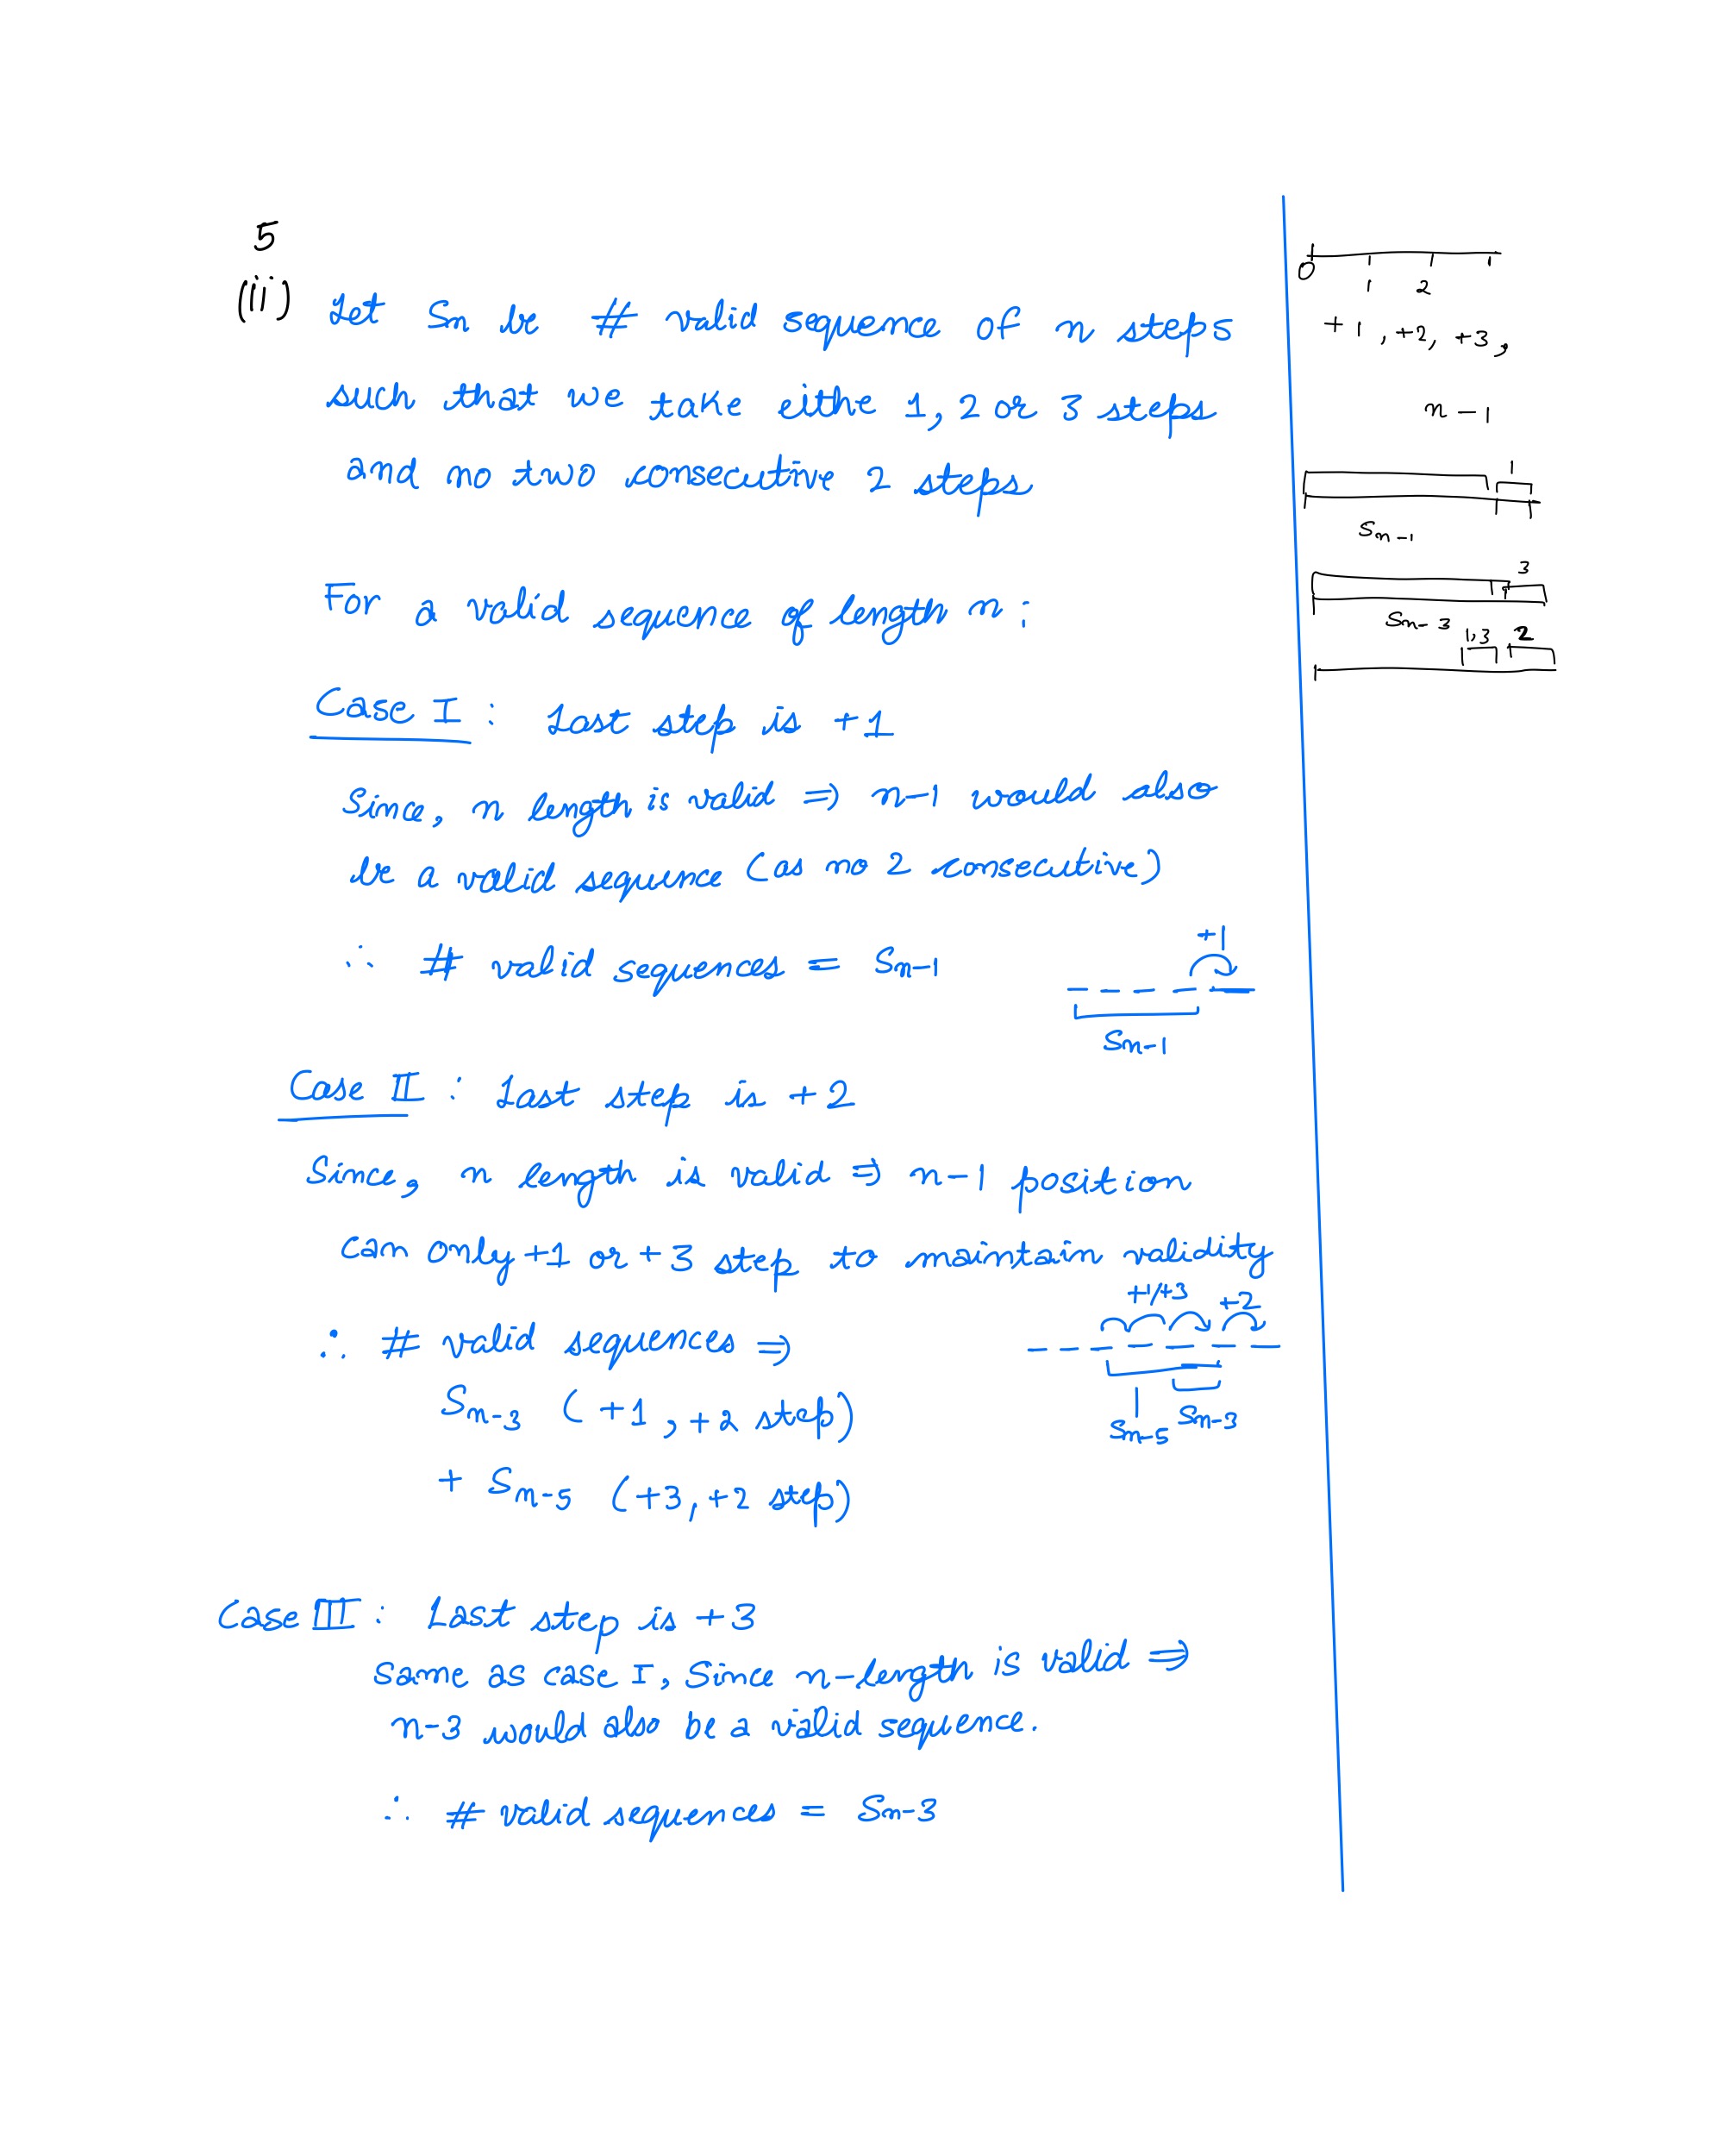 5
(ii) Let Sn be # valid sequence of n steps
such that we take eithe 1, 2 or 3 steps
and no two consecutive 2 steps
For a valid sequence of length n :
Case I : Last step is +1
Since, n length is valid ⇒ n-1 would also
be a valid sequence (as no 2 consecutive)
∴ # valid sequences = Sn-1
+1
Sn-1
Case II : Last step is +2
Since, n length is valid ⇒ n-1 position
can only +1 or +3 step to maintain validity
∴ # valid sequences ⇒
+1/+3 +2
Sn-3 (+1, +2 step)
Sn-5 Sn-3
+ Sn-5 (+3, +2 step)
Case III : Last step is +3
Same as case I, Since n-length is valid ⇒
n-3 would also be a valid sequence.
∴ # valid sequences = Sn-3
0 1 2
+1, +2, +3,
n-1
1
Sn-1
3
Sn-3
1,3 2